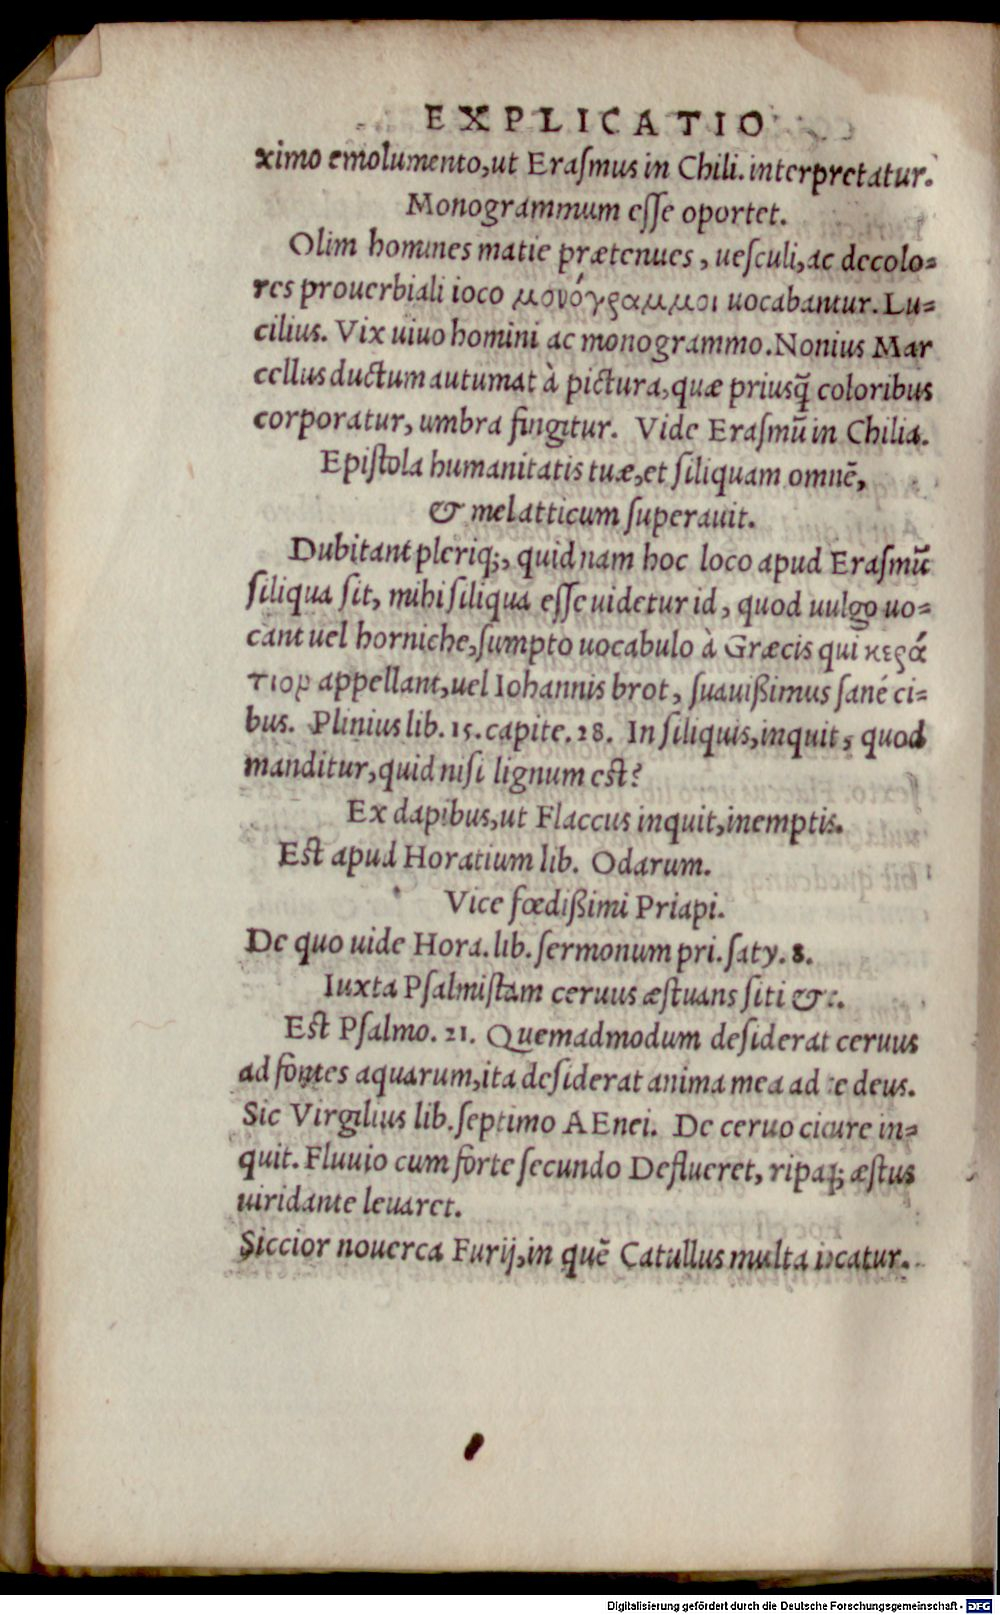 EXPLICATIO
ximo emolumento, ut Erasmus in Chili. interpretatur.
Monogrammum esse oportet.
Olim homines matie prætenues, uesculi, ac decolo=
res prouerbiali ioco μονόγραμμοι uocabantur. Lu=
cilius. Vix uiuo homini ac monogrammo. Nonius Mar
cellus ductum autumat à pictura, quæ priusq̃ coloribus
corporatur, umbra fingitur. Vide Erasmũ in Chilia.
Epistola humanitatis tuæ, et siliquam omnẽ,
& mel atticum superauit.
Dubitant pleriq;, quidnam hoc loco apud Erasmũ
siliqua sit, mihi siliqua esse uidetur id, quod uulgo uo=
cant uel horniche, sumpto uocabulo à Græcis qui κερά
τιον appellant, uel Iohannis brot, suauißimus sané ci=
bus. Plinius lib. 15. capite. 28. In siliquis, inquit, quod
manditur, quid nisi lignum est?
Ex dapibus, ut Flaccus inquit, inemptis.
Est apud Horatium lib. Odarum.
Vice fœdißimi Priapi.
De quo uide Hora. lib. sermonum pri. saty. 8.
Iuxta Psalmistam ceruus æstuans siti &c.
Est Psalmo. 21. Quemadmodum desiderat ceruus
ad fontes aquarum, ita desiderat anima mea ad te deus.
Sic Virgilius lib. septimo AEnei. De ceruo cicure in=
quit. Fluuio cum forte secundo Deflueret, ripaq; æstus
uiridante leuaret.
Siccior nouerca Furij, in quẽ Catullus multa iocatur.
Digitalisierung gefördert durch die Deutsche Forschungsgemeinschaft - DFG